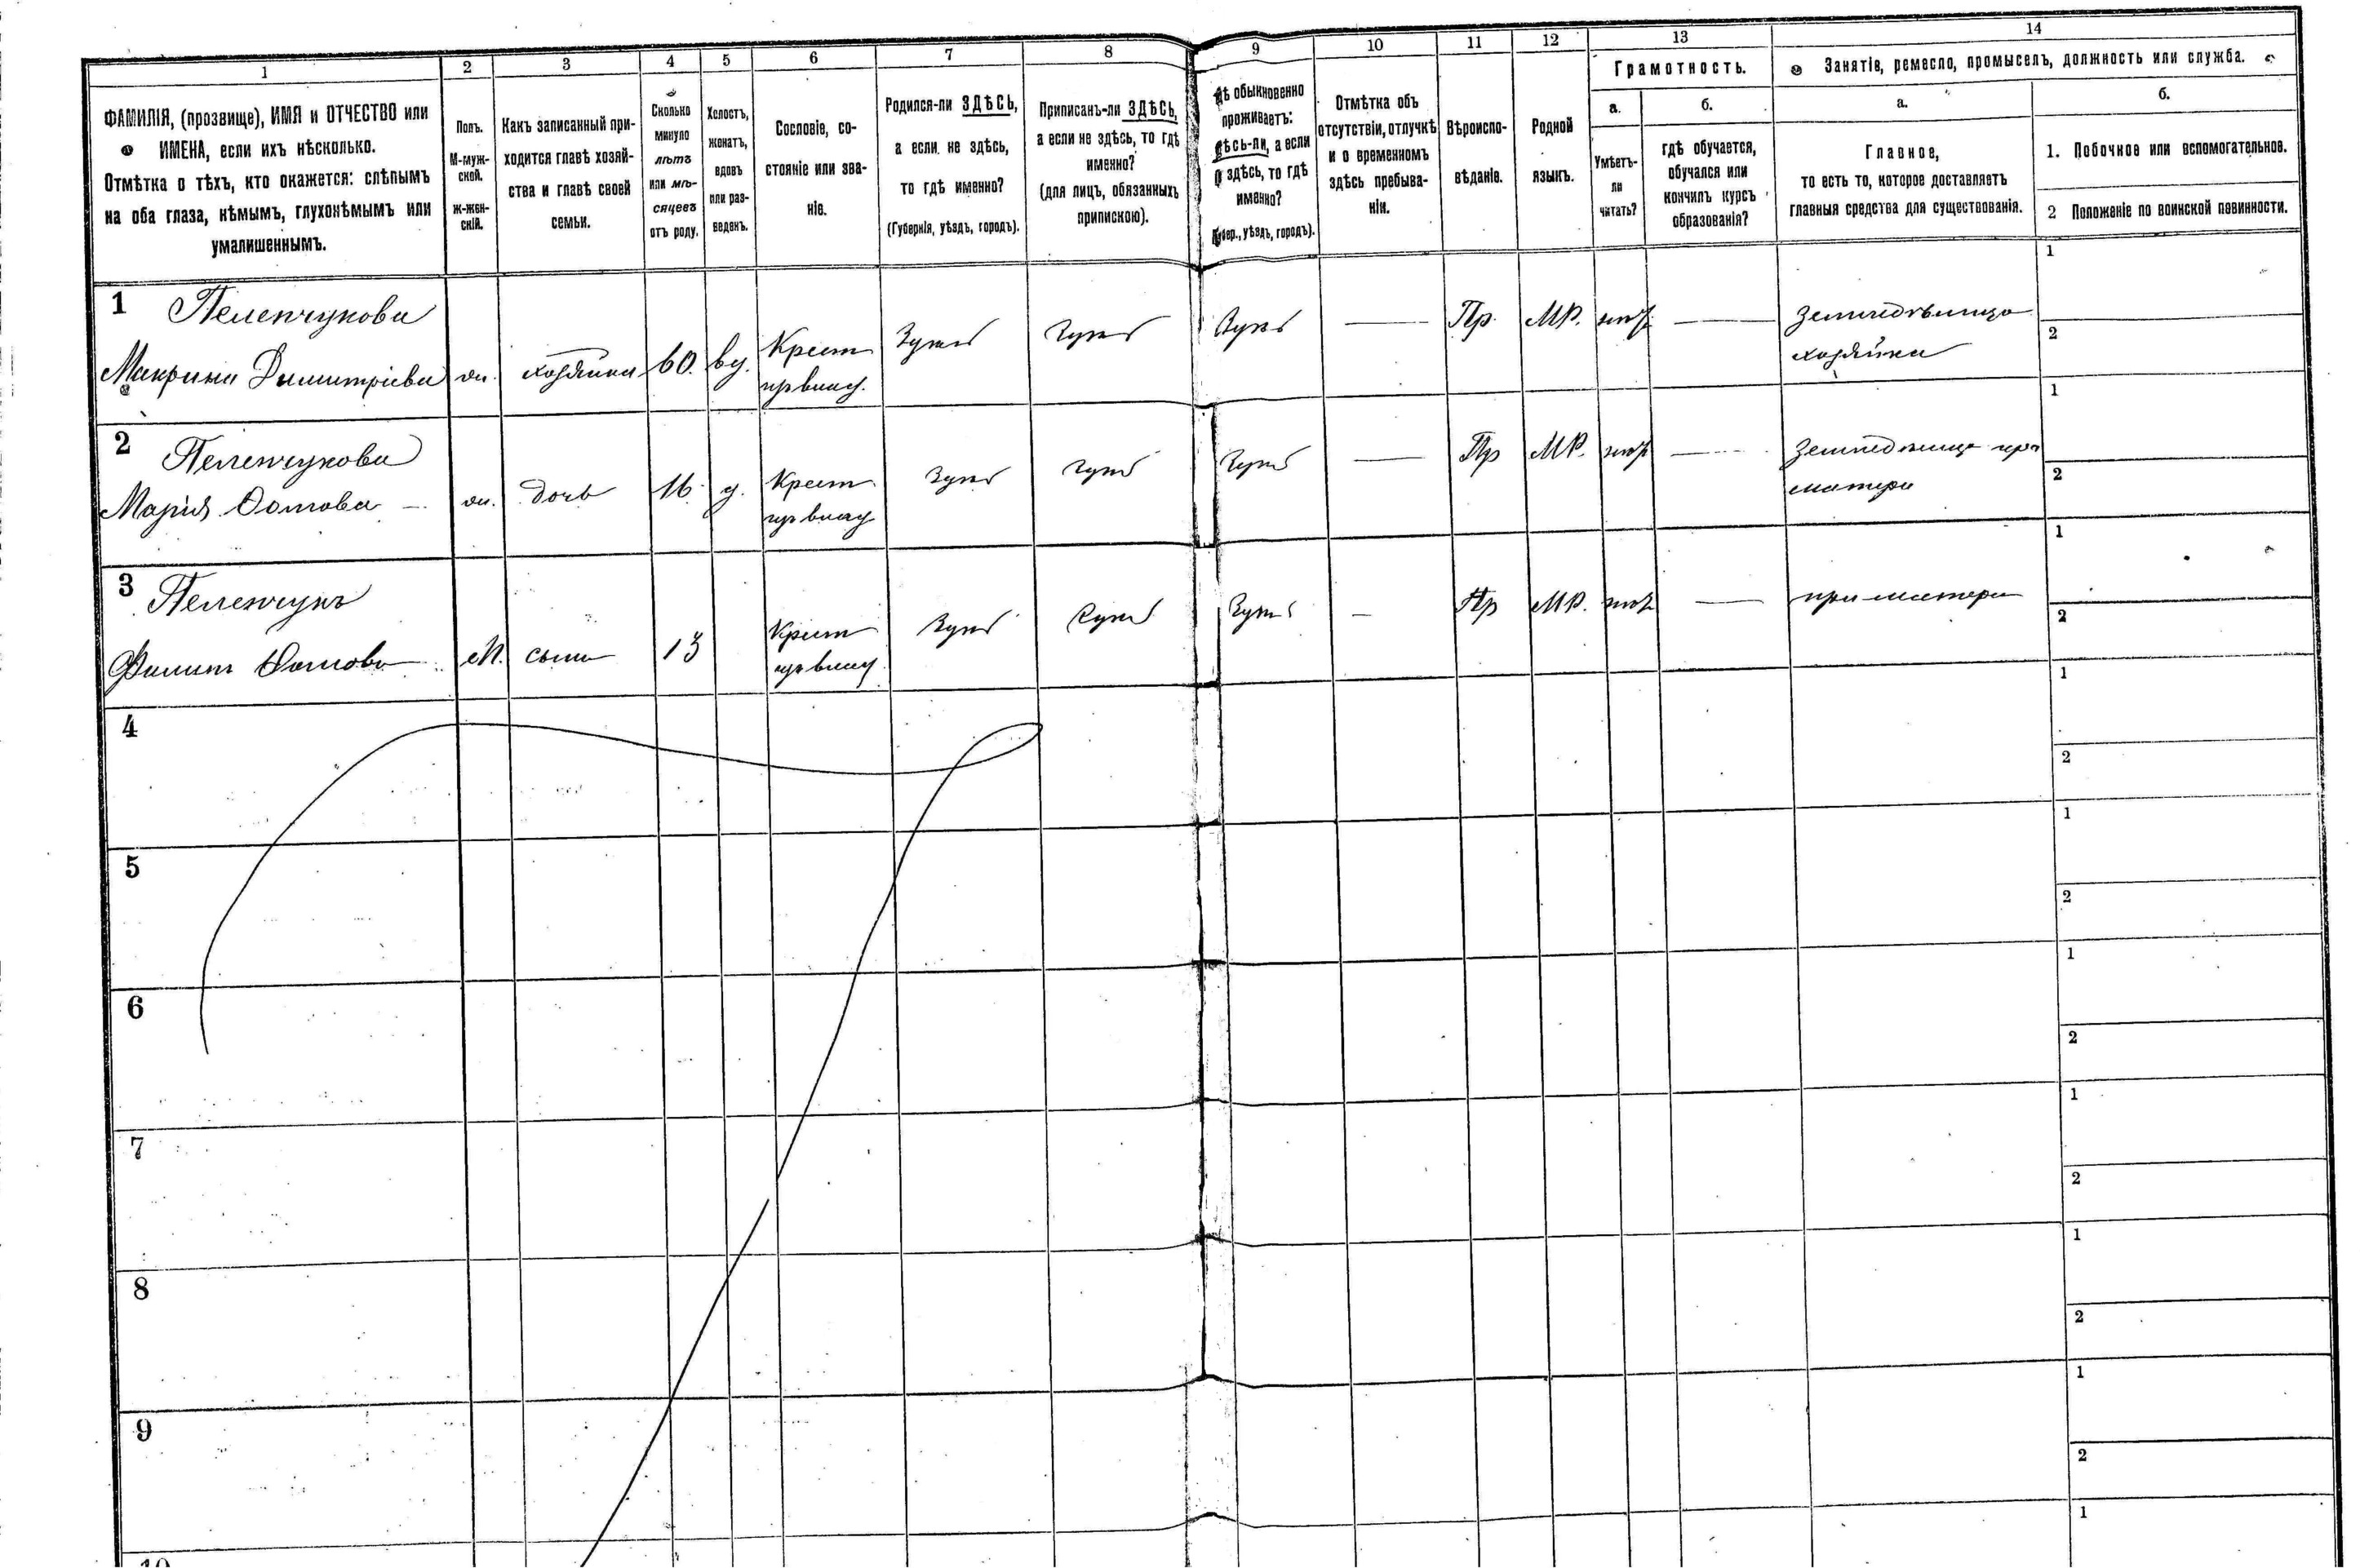 1 2 3 4 5 6 7 8 9 10 11 12 13 14
ФАМИЛІЯ, (прозвище), ИМЯ и ОТЧЕСТВО или
ИМЕНА, если ихъ нѣсколько.
Отмѣтка о тѣхъ, кто окажется: слѣпымъ
на оба глаза, нѣмымъ, глухонѣмымъ или
умалишеннымъ.
Полъ.
М-муж-
ской.
Ж-жен-
скій.
Какъ записанный при-
ходится главѣ хозяй-
ства и главѣ своей
семьи.
Сколько
минуло
лѣтъ
или мѣ-
сяцевъ
отъ роду.
Холостъ,
женатъ,
вдовъ
или раз-
веденъ.
Сословіе, со-
стояніе или зва-
ніе.
Родился-ли ЗДѢСЬ,
а если не здѣсь,
то гдѣ именно?
(Губернія, уѣздъ, городъ).
Приписанъ-ли ЗДѢСЬ,
а если не здѣсь, то гдѣ
именно?
(для лицъ, обязанныхъ
припискою).
обыкновенно
проживаетъ:
а если
здѣсь, то гдѣ
именно?
уѣздъ, городъ).
Отмѣтка объ
отсутствіи, отлучкѣ
и о временномъ
здѣсь пребыва-
ніи.
Вѣроиспо-
вѣданіе.
Родной
языкъ.
Грамотность.
а.
Умѣетъ-
ли
читать?
б.
гдѣ обучается,
обучался или
кончилъ курсъ
образованія?
Занятіе, ремесло, промыселъ, должность или служба.
а.
Главное,
то есть то, которое доставляетъ
главныя средства для существованія.
б.
1. Побочное или вспомогательное.
2 Положеніе по воинской повинности.
1 Пеленчукова
Макрина Димитріева
ж. хозяйка 60. вд. Крест
из влад.
Пр. М.Р.
хозяйка
1
2
2 Пеленчукова
Марія
ж. дочь 16. д. Крест
из влад
Пр М.Р.
при
матери
1
2
3 Пеленчукъ
Филипп
М. сынъ 13 Крест
из влад
Пр М.Р.
при матери
1
2
4
1
2
5
1
2
6
1
2
7
1
2
8
1
2
9
1
2
10
1